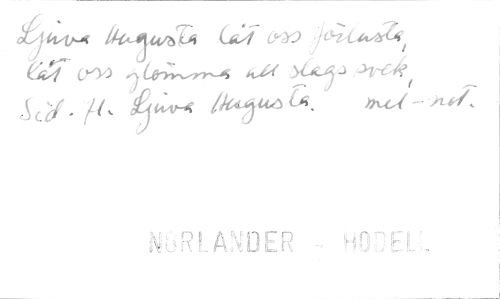 Ljuva Augusta låt oss förlusta,
låt oss glömma all slags svek,
Sid. H. Ljuva Augusta. mel-not.
NORLANDER - HODELL